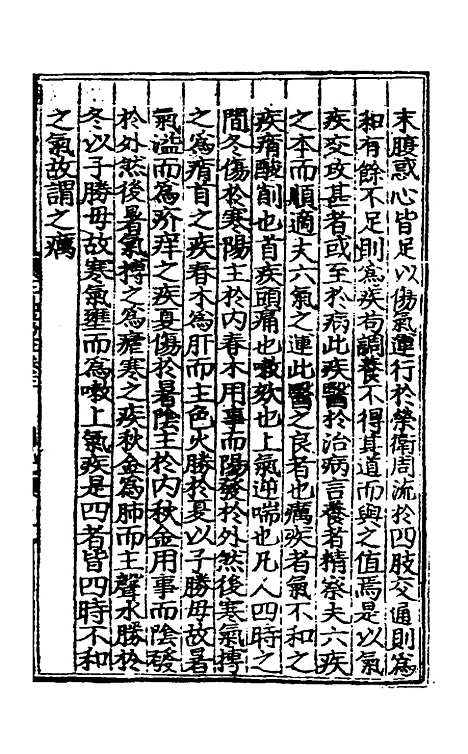 末腹惑心皆足以傷氣運行於榮衛周流於四肢交通則為
和有餘不足則為疾苟調養不得其道而與之值焉是以氣
疾交攻甚者或至於病此疾醫於治病言養者精察夫六疾
之本而順適夫六氣之運此醫之良者也癘疾者氣不和之
疾痟酸削也首疾頭痛也嗽欬也上氣逆喘也凡人四時之
間冬傷於寒陽主於内春木用事而陽發於外然後寒氣摶
之為痟首之疾春木為肝而主色火勝於夏以子勝母故暑
氣溢而為疥痒之疾夏傷於暑陰主於内秋金用事而陰發
於外然後暑氣摶之為瘧寒之疾秋金為肺而主聲水勝於
冬以子勝母故寒氣壅而為嗽上氣疾是四者皆四時不和
之氣故謂之癘